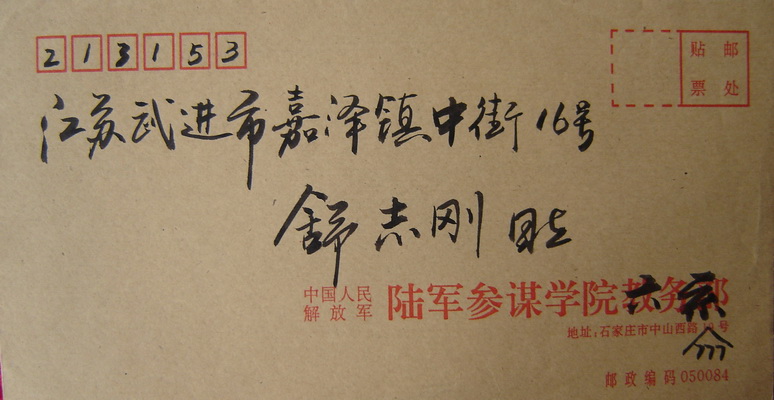 213153
贴 邮
票 处
江苏武进市嘉泽镇中街16号
舒志刚
中国人民
解放军
陆军参谋学院教务部
地址:石家庄市中山西路 号
邮政编码050084